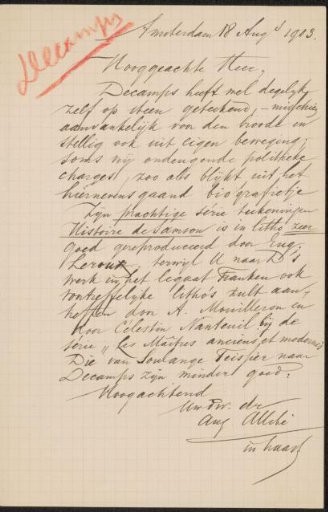 Decamps
Amsterdam 18 Aug 1903.
Hooggeachte Heer,
Decamps heeft wel degelijk
zelf op steen geteekend, – misschien
aanvankelijk voor den broode en
stellig ook uit eigen beweging;
soms ondeugende politieke
charges, zoo als blijkt uit het
hiernevens gaand biografietje
Zijn prachtige serie teekeningen
Histoire de Samson is in litho zeer
goed gereproduceerd door Eug.
Leroux, terwijl U naar D's
werk in het legaat Franken ook
voortreffelijke litho's zult aan-
treffen door A. Mouilleron en
door Célestin Nanteuil bij de
serie „Les Maîtres anciens et modernes
Die van Soulange Teissier naar
Decamps zijn minder goed.
Hoogachtend
Uw dw. dr
Aug Allebé
in haast